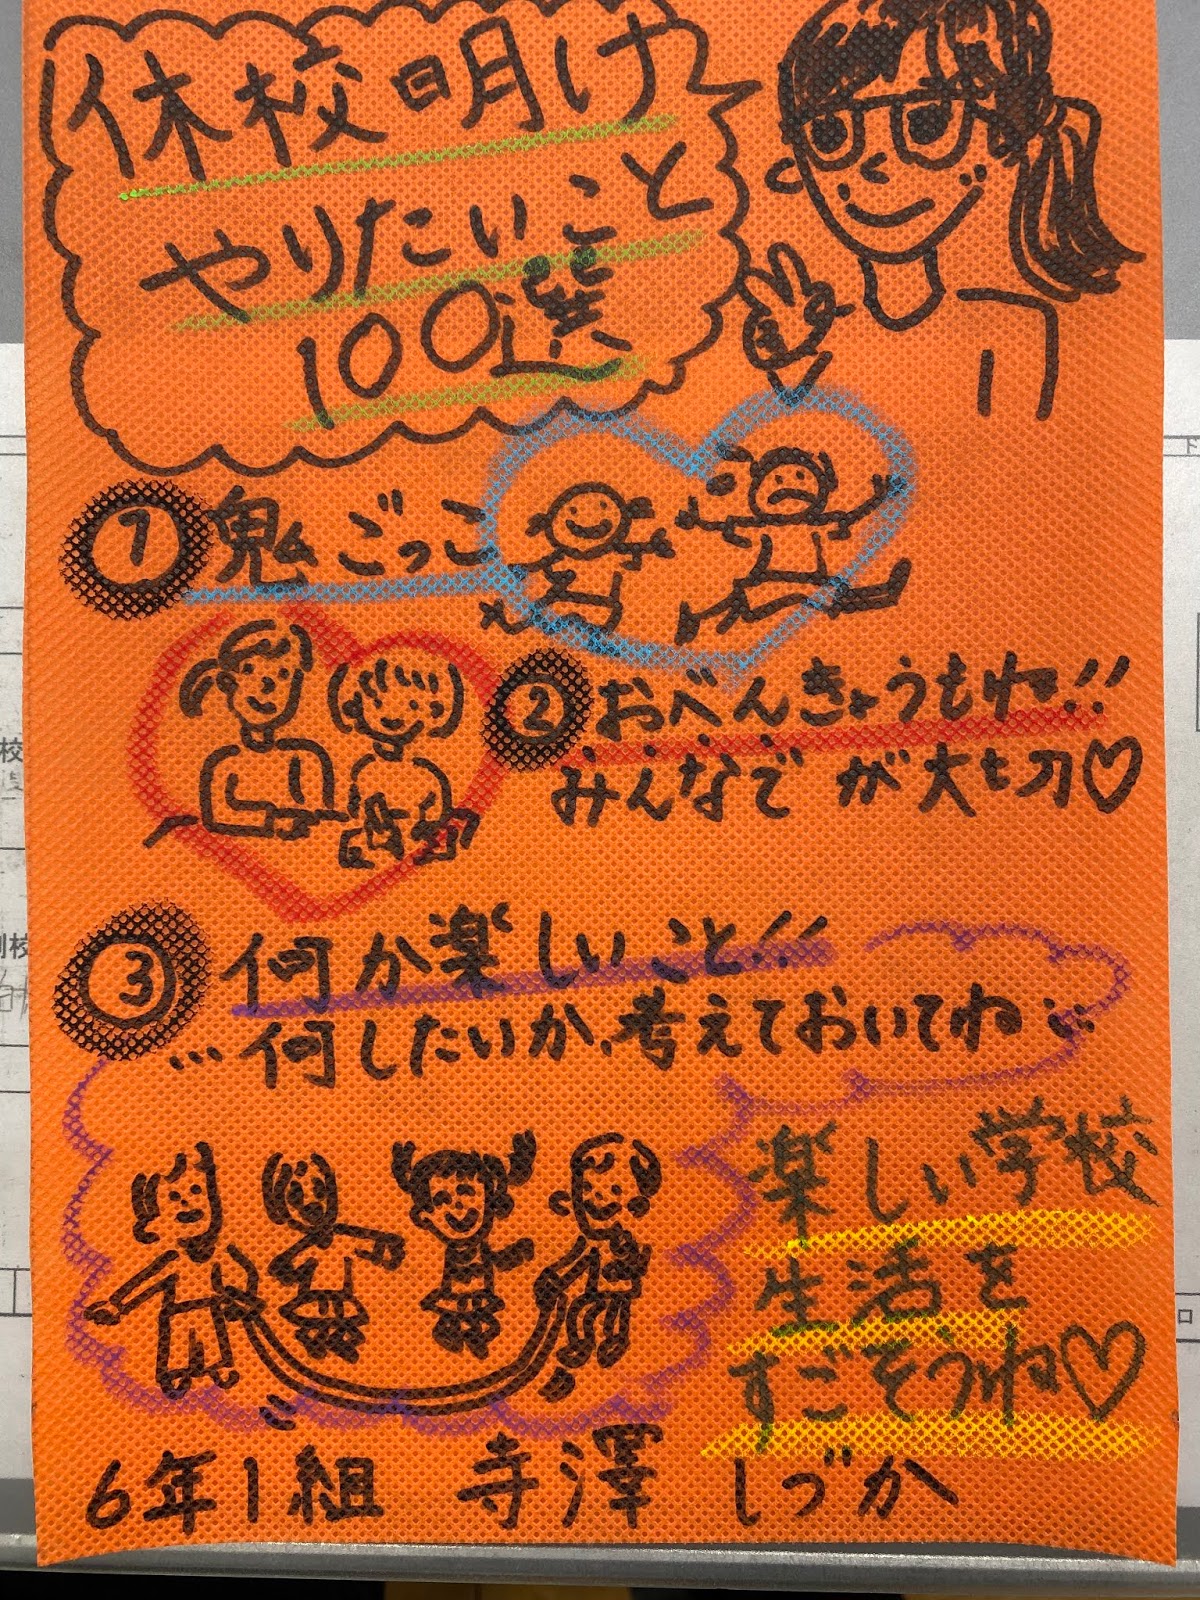 休校明け
やりたいこと
100選
① 鬼ごっこ
② おべんきょうもね!!
みんなでが大切♡
③ 何か楽しいこと!!
…何したいか、考えておいてね
楽しい学校
生活を
すごそうね♡
6年1組 寺澤 しづか